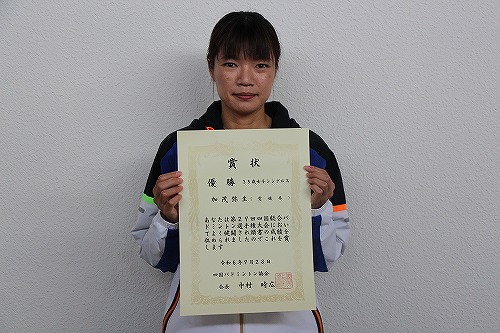 賞状
優勝 35歳女子シングルス
加茂弥生(愛媛県)
あなたは第29回四国総合バ
ドミントン選手権大会におい
てよく健闘され頭書の成績を
収められましたのでこれを賞
します
令和6年9月23日
四国バドミントン協会
会長 中村 時広